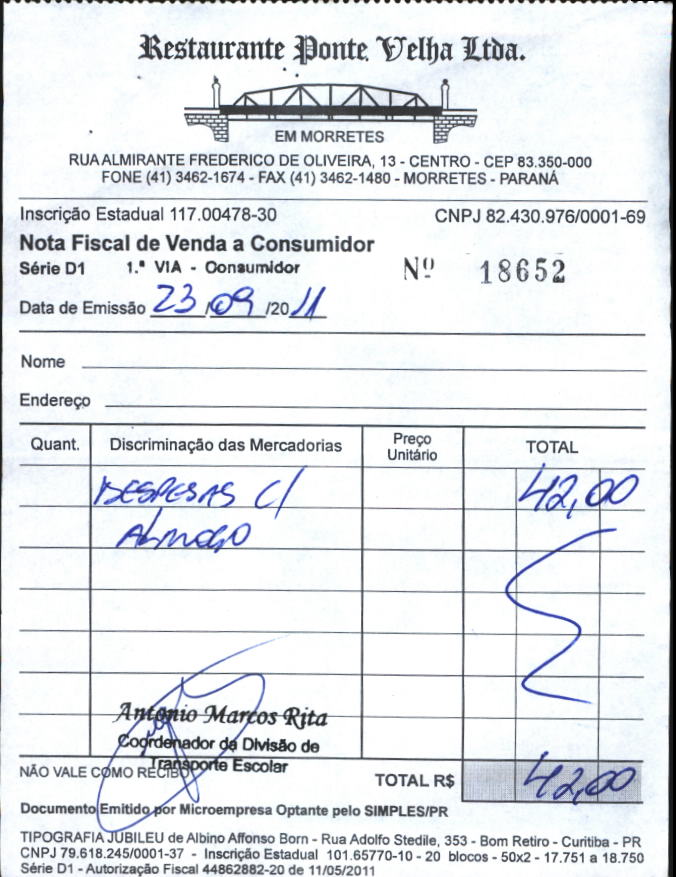 Restaurante Ponte Velha Ltda.
EM MORRETES
RUA ALMIRANTE FREDERICO DE OLIVEIRA, 13 - CENTRO - CEP 83.350-000
FONE (41) 3462-1674 - FAX (41) 3462-1480 - MORRETES - PARANÁ
Inscrição Estadual 117.00478-30 CNPJ 82.430.976/0001-69
Nota Fiscal de Venda a Consumidor
Série D1 1.ª VIA - Consumidor Nº 18652
Data de Emissão 23/09/2011
Nome
Endereço
Quant. Discriminação das Mercadorias Preço Unitário TOTAL
DESPESAS C/ 42,00
ALMOÇO
Antonio Marcos Rita
Coordenador da Divisão de
Transporte Escolar
NÃO VALE COMO RECIBO TOTAL R$ 42,00
Documento Emitido por Microempresa Optante pelo SIMPLES/PR
TIPOGRAFIA JUBILEU de Albino Affonso Born - Rua Adolfo Stedile, 353 - Bom Retiro - Curitiba - PR
CNPJ 79.618.245/0001-37 - Inscrição Estadual 101.65770-10 - 20 blocos - 50x2 - 17.751 a 18.750
Série D1 - Autorização Fiscal 44862882-20 de 11/05/2011